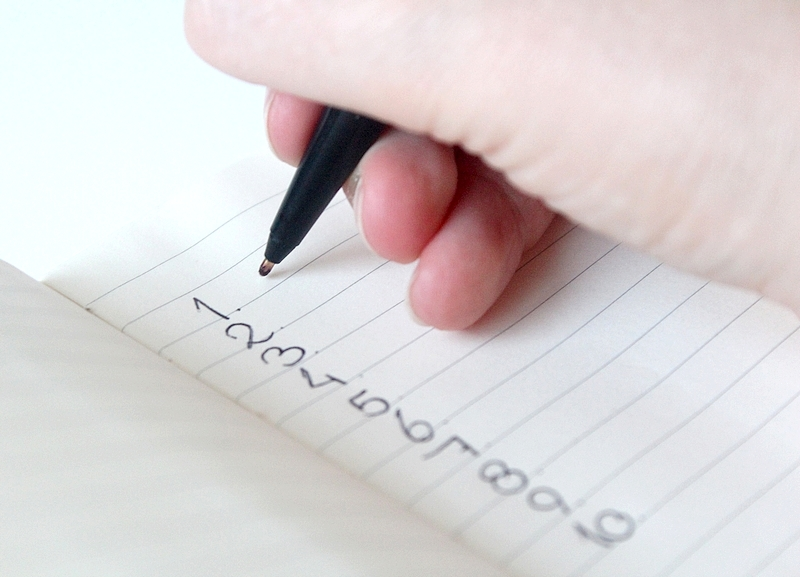 1.
2.
3.
4.
5.
6.
7.
8.
9.
10.